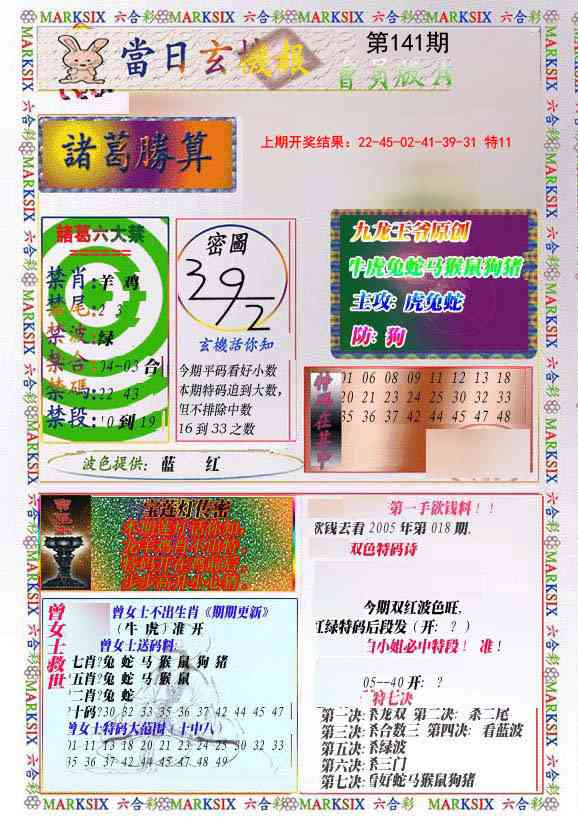 MARKSIX 六合彩 MARKSIX 六合彩 MARKSIX 六合彩 MARKSIX 六合彩
當日玄機报
第141期
會員版A
諸葛勝算
上期开奖结果：22-45-02-41-39-31 特11
諸葛六大禁
禁肖:羊 鸡
禁尾:2 3
禁波:绿
禁合:04-03 合
禁碼:22 43
禁段:10 到 19
密圖
392
玄機話你知
今期平码看好小数
本期特码追到大数，
但不排除中数
16 到 33 之数
九龙王爷原创
牛虎兔蛇马猴鼠狗猪
主攻: 虎兔蛇
防: 狗
特码在其中
01 06 08 09 11 12 13 18
20 21 23 24 25 30 32 33
35 36 37 42 44 45 47 48
波色提供: 蓝 红
宝莲灯传密
第一手欲钱料！！
欲钱去看 2005 年第 018 期.
双色特码诗
今期双红波色旺,
红绿特码后段发（开: ？）
白小姐必中特段！ 准！
05--40 开: ？
特七决
第一决:杀龙双 第二决: 杀二尾
第三决:杀合数三 第四决: 看蓝波
第五决:杀绿波
第六决:杀三门
第七决:看好蛇马猴鼠狗猪
曾女士救世
曾女士不出生肖《期期更新》
（牛 虎）准 开
曾女士送码料:
七肖?兔 蛇 马 猴 鼠 狗 猪
五肖?兔 蛇 马 猴 鼠
二肖?兔 蛇
十码?30 32 33 35 36 37 42 44 45 47
曾女士特码大范围（十中八）
01 11 13 18 20 21 23 24 25 30 32 33
35 36 37 42 44 45 47 48 49
MARKSIX 六合彩 MARKSIX 六合彩 MARKSIX 六合彩 MARKSIX 六合彩